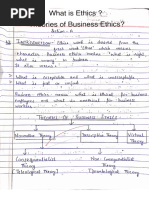 What is Ethics ?
Theories of Business Ethics?
Section - A
Introduction: Ethics word is derived from the
word 'Ethos' which means
character. business ethics means "what is right,
what is wrong" to business.
It also means:-
What is acceptable and what is unacceptable
Business Ethics means what is ethical for business
and what is unethical for business
workers.
Theories Of Business Ethics
Normative Theory
Descriptive Theory
Virtual
Theory
Consequentialist
Theory
(Teleological Theory)
Non Consequentialist
Theory
(Deontological Theory)